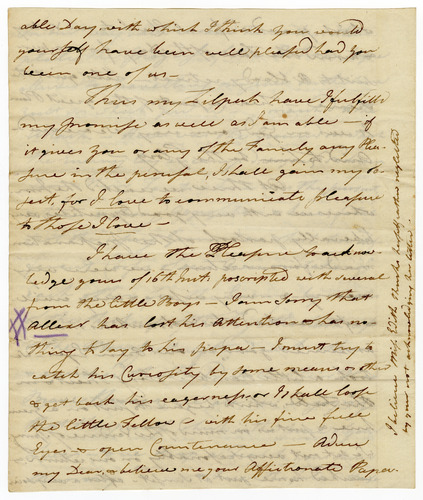 able Day, with which I think you would
yourself have been well pleased had you
been one of us—
Thus my Zilpah have I fulfilled
my promise as well as I am able — if
it gives you or any of the Family any Plea-
sure in the perusal, I shall gain my ob-
ject, for I love to communicate pleasure
to those I love —
I have the Pleasure to acknow-
ledge yours of 16th Inst. postscripted with several
from the little Boys — I am sorry that
has lost his Attention & has no-
thing to say to his papa — I must try to
catch his Curiosity by some means or other
& get back his eagerness, or I shall loose
the little Fellow — with his fine free
Eyes & open Countenance — Adieu
my Dear, & believe me your Affectionate Papa.
I believe Miss Edith thinks herself rather neglected
by your not acknowledging her letter.